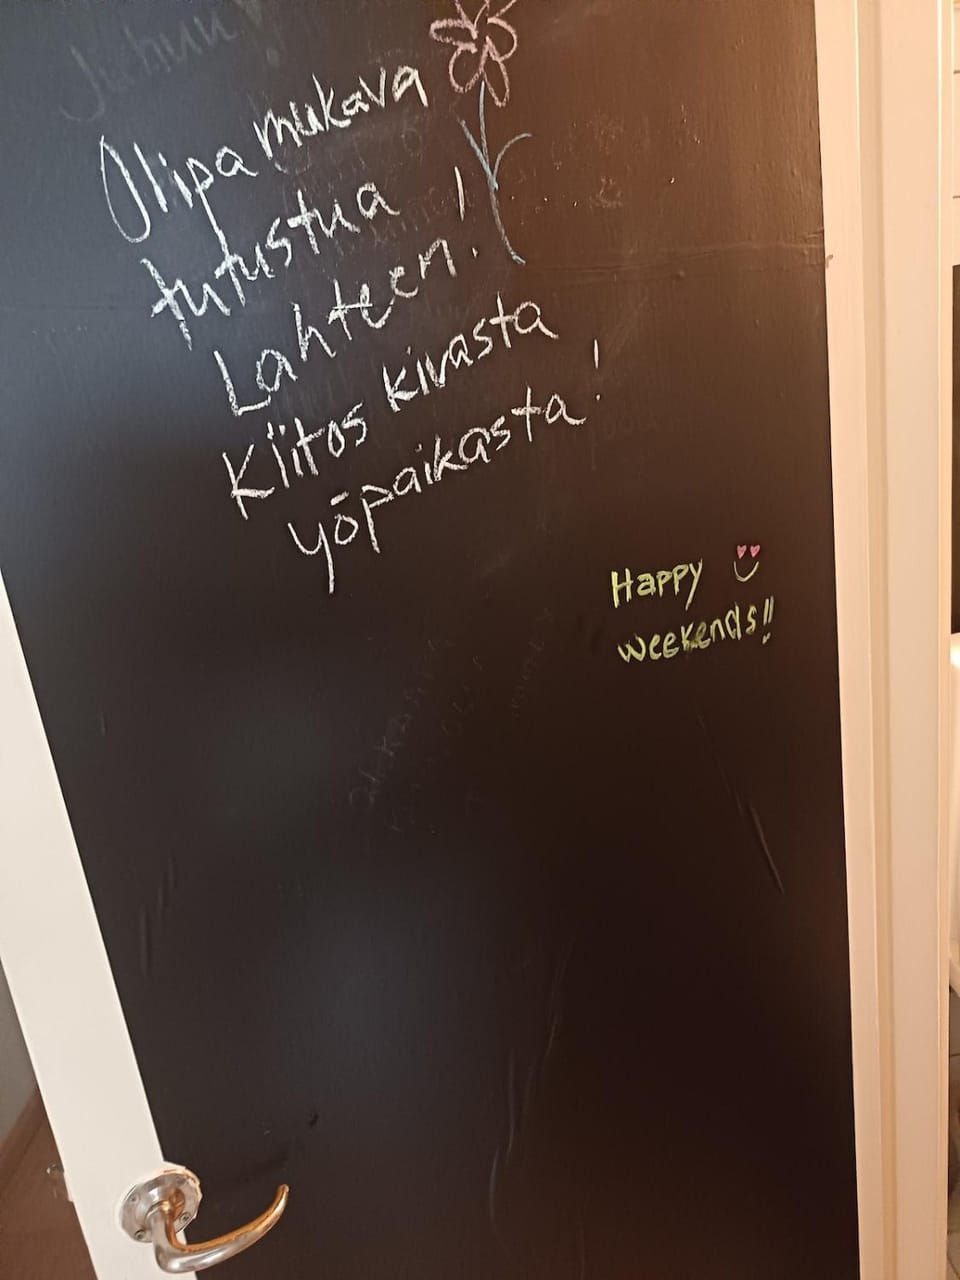 Olipa mukava
tutustua
Lahteen.!
Kiitos kivasta
yöpaikasta!
Happy
weekends!!